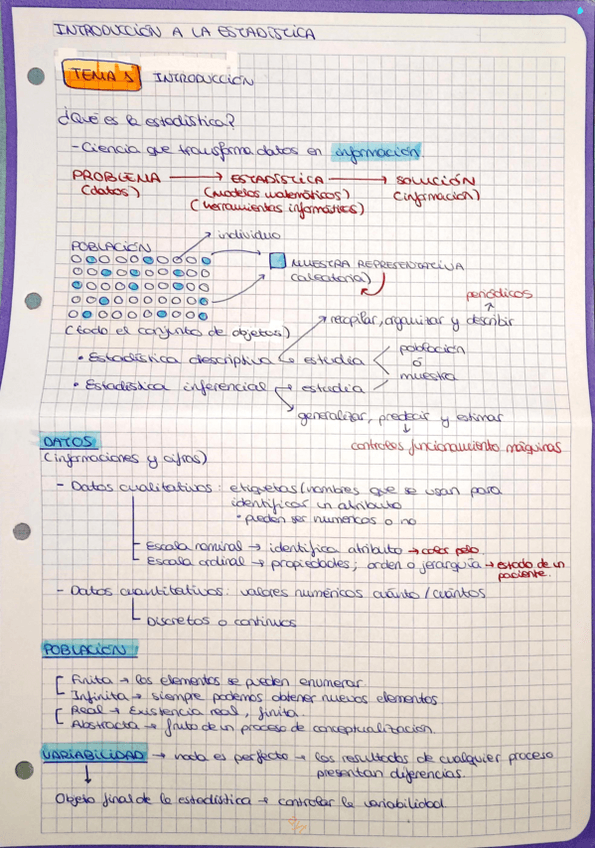 INTRODUCCIÓN A LA ESTADÍSTICA
TEMA 1 INTRODUCCIÓN
¿Qué es la estadística?
- Ciencia que transforma datos en información.
PROBLEMA → ESTADÍSTICA → SOLUCIÓN
(datos) (modelos matemáticos) (información)
(herramientas informáticas)
individuo
POBLACIÓN
MUESTRA REPRESENTATIVA
(aleatoria)
periódicos
(todo el conjunto de objetos)
recopilar, organizar y describir
• Estadística descriptiva → estudia
población
ó
• Estadística inferencial → estudia
muestra
generalizar, predecir y estimar
controles funcionamiento máquinas
DATOS
(informaciones y cifras)
- Datos cualitativos: etiquetas/nombres que se usan para
identificar un atributo
• pueden ser numéricos o no
Escala nominal → identifica atributo → color pelo.
Escala ordinal → propiedades; orden o jerarquía → estado de un
paciente.
- Datos cuantitativos: valores numéricos cuánto/cuántos
Discretos o continuos
POBLACIÓN
Finita → los elementos se pueden enumerar.
Infinita → siempre podemos obtener nuevos elementos
Real → Existencia real, finita.
Abstracta → fruto de un proceso de conceptualización.
VARIABILIDAD → nada es perfecto → los resultados de cualquier proceso
presentan diferencias.
Objeto final de la estadística → controlar la variabilidad